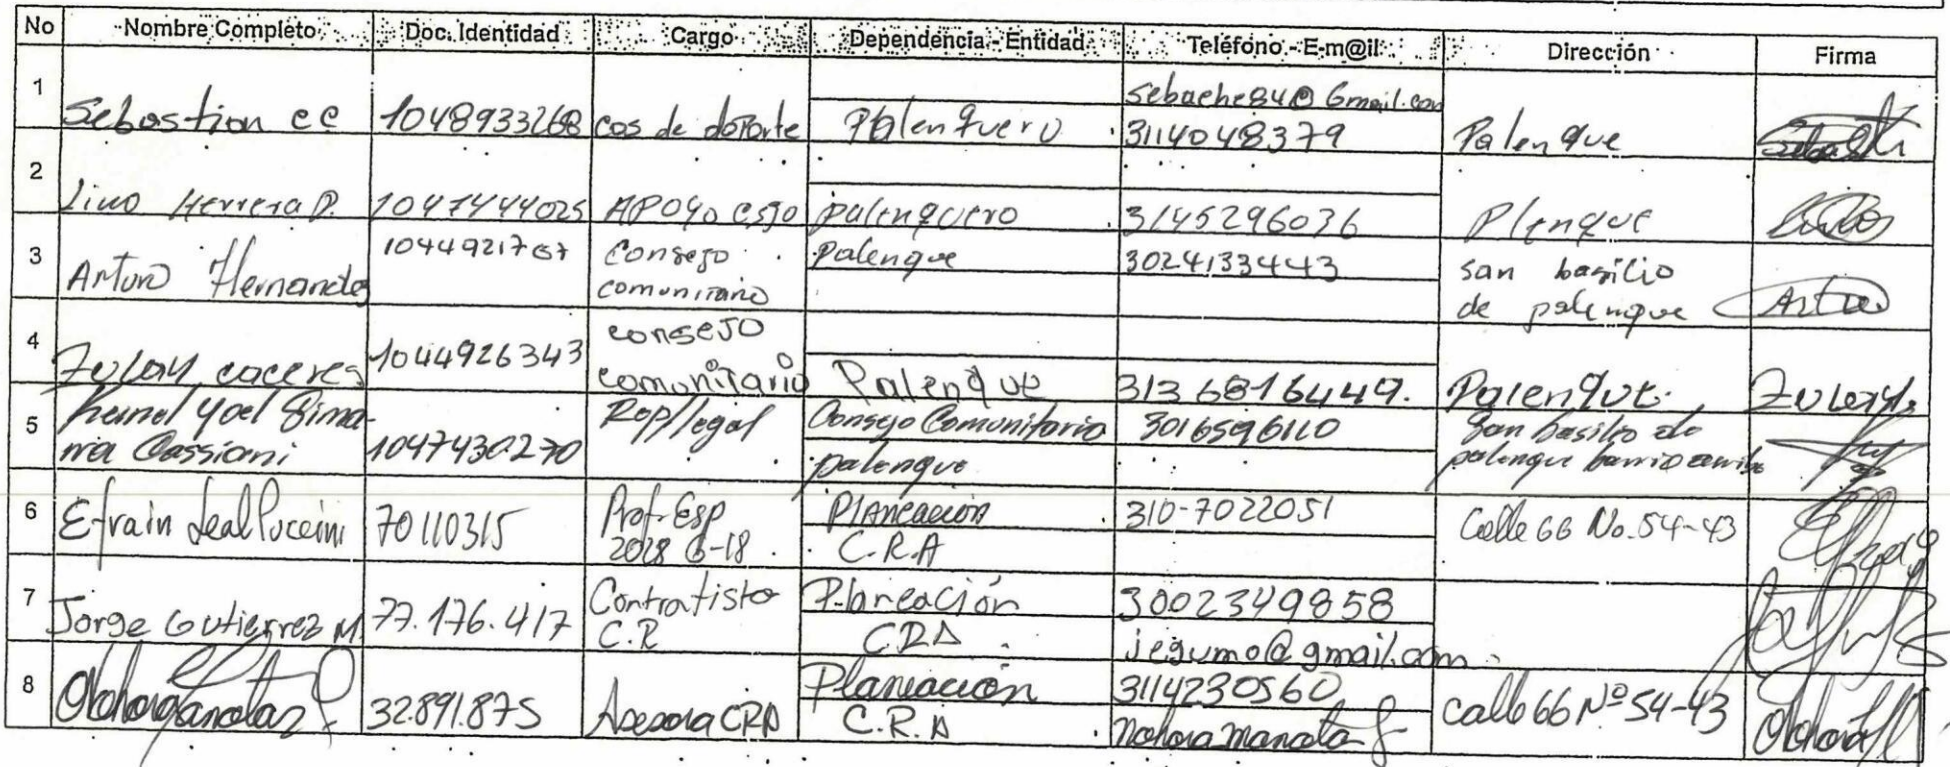 No Nombre Completo Doc. Identidad Cargo Dependencia - Entidad Teléfono - E-m@il Dirección Firma
1 Sebastion cc 1048933268 cos de doporte Palenquero sebache84@Gmail.com 3114048379 Palenque
2 Lino Herrera P. 1047444025 Apoyo csjo palenquero 3145296036 Plenque
3 Arturo Hernandes 1044921767 Consejo comunitario Palenque 3024133443 san basilio de palenque
4 Zulay caceres 1044926343 consejo comunitario Palenque 3136816449. Palenque. Zulay
5 Yoel Sima- rra Cassiani 1047430270 Rep/legal Consejo Comunitario palenque 3016596110 San basilio de palenque barrio
6 Efrain Leal Puccini 70110315 Prof. Esp 2028 G-18 Planeación C.R.A 310-7022051 Calle 66 No. 54-43
7 Jorge Gutierrez M 77.176.417 Contratista C.R Planeación CRA 3002349858 jegumo@gmail.com
8 32.891.875 Asesora CRA Planeación C.R.A 3114230560 Calle 66 Nº 54-43